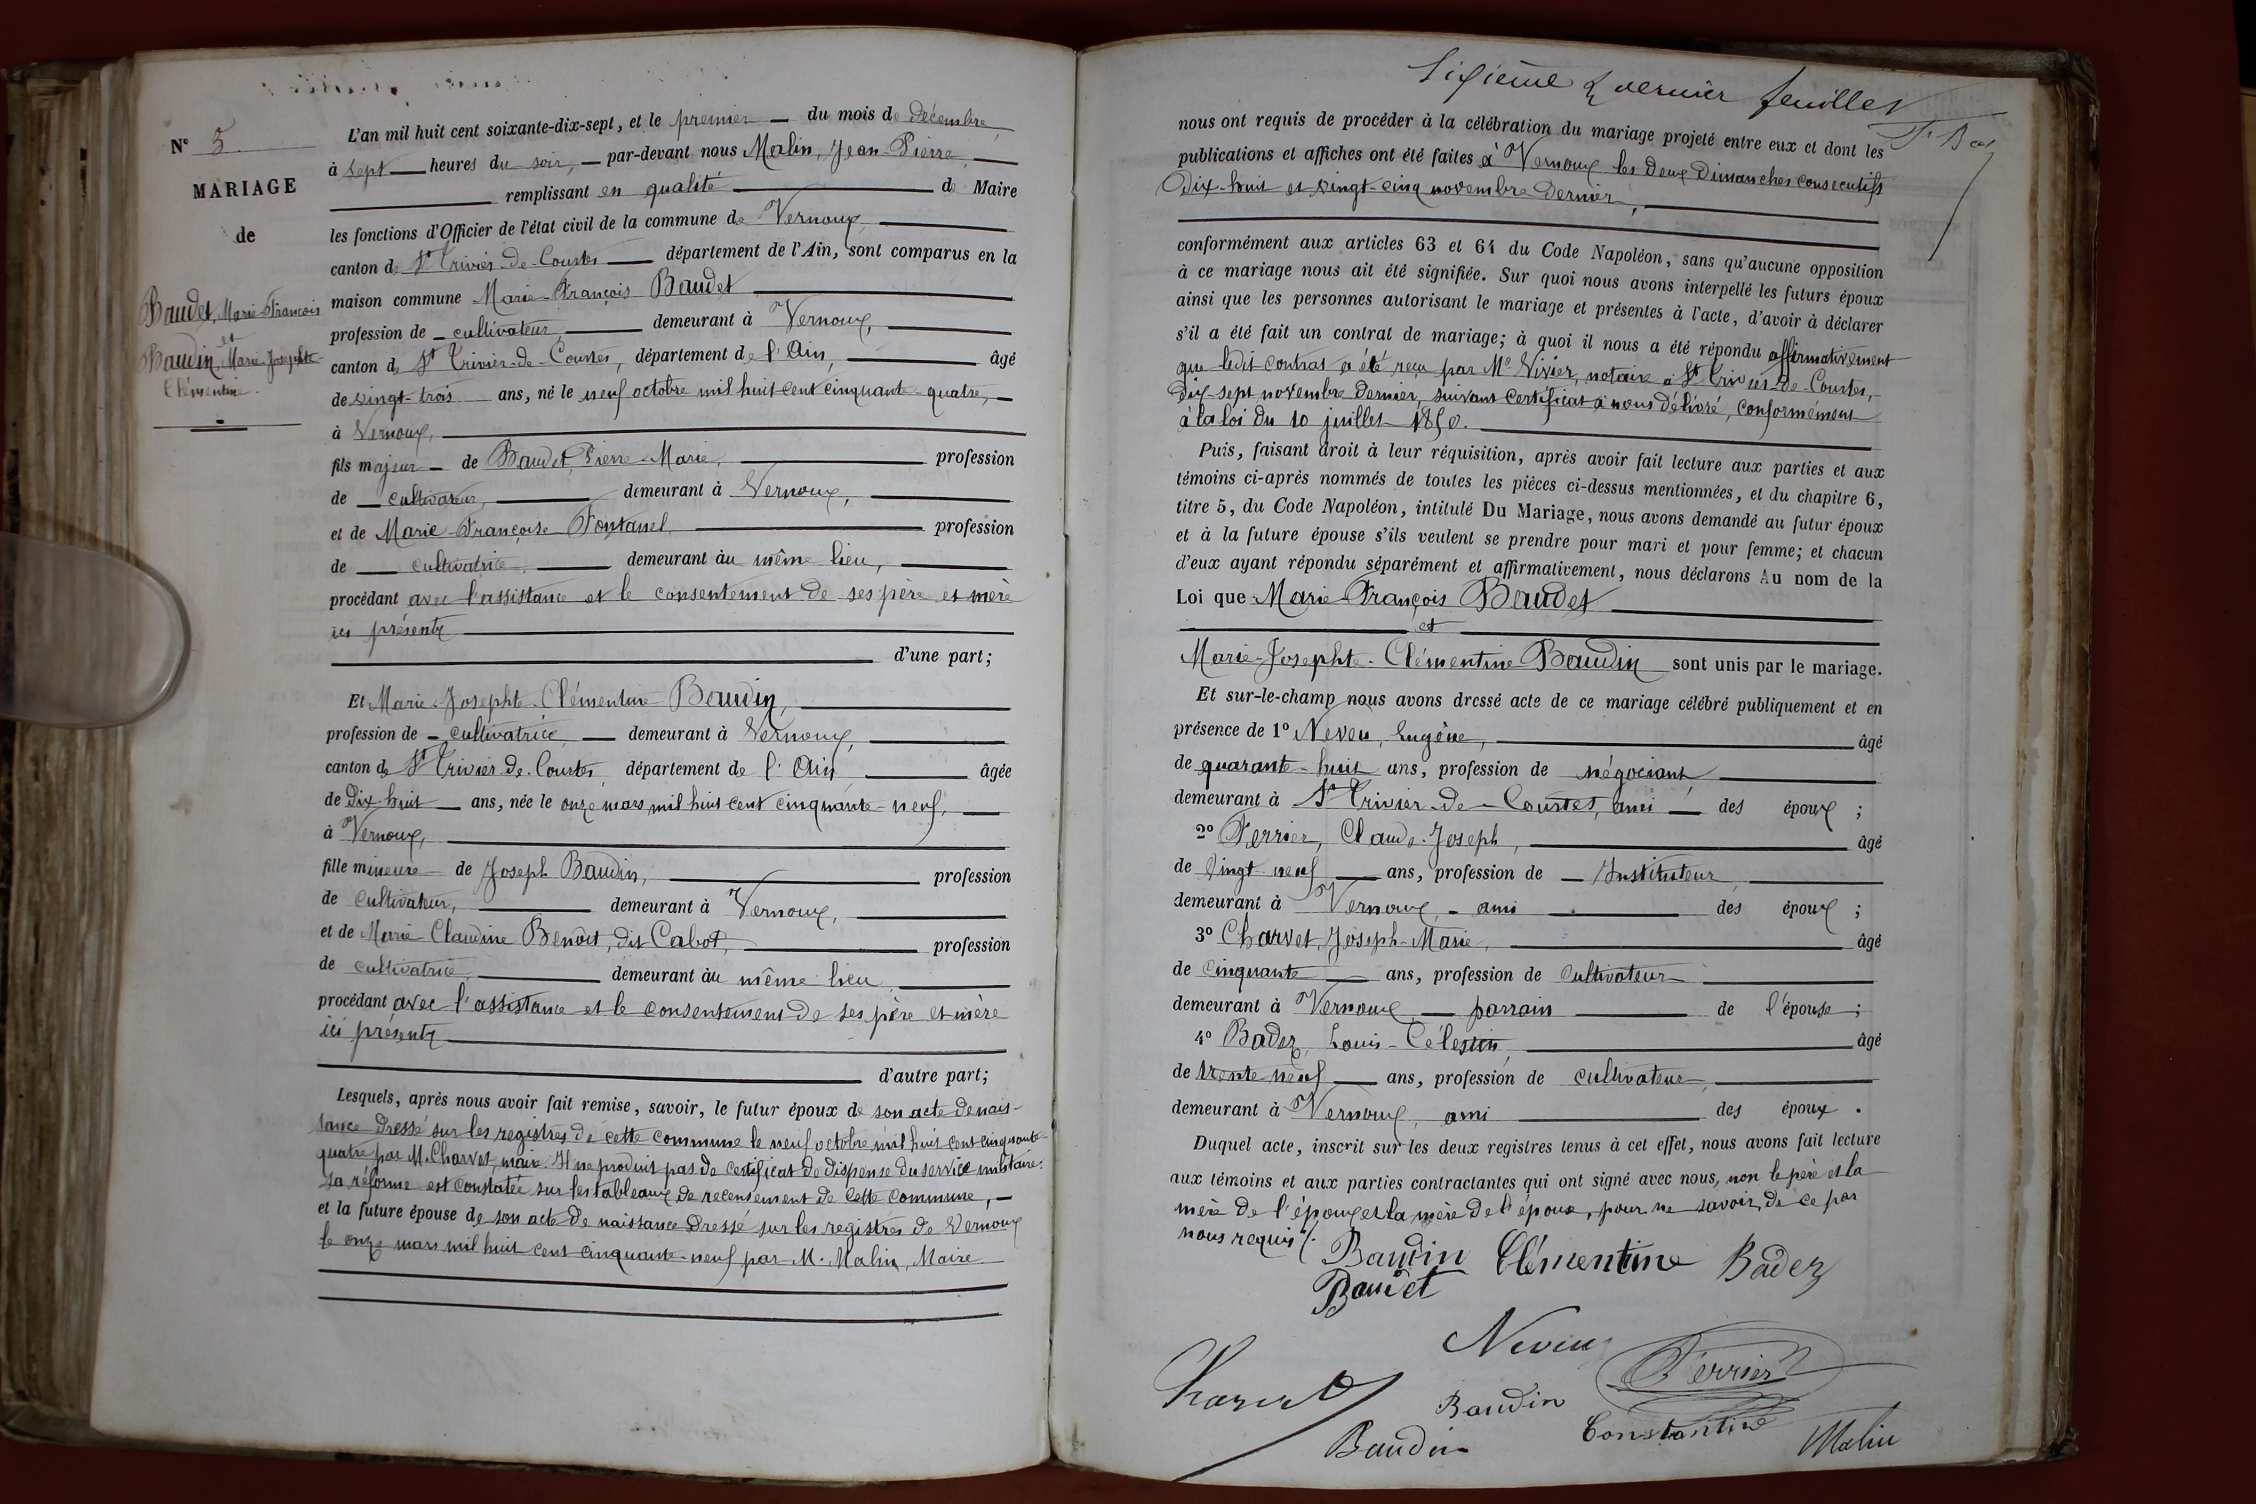 N° 5.
MARIAGE
de
Baudet, Marie-François
et
Baudin, Marie-Josephte
Clémentine.
L'an mil huit cent soixante-dix-sept, et le premier du mois de Décembre
à sept heures du soir, par-devant nous Malin, Jean-Pierre,
remplissant en qualité de Maire
les fonctions d'Officier de l'état civil de la commune de Vernoux,
canton de St Trivier-de-Courtes département de l'Ain, sont comparus en la
maison commune Marie-François Baudet
profession de cultivateur demeurant à Vernoux,
canton de St Trivier-de-Courtes, département de l'Ain, âgé
de vingt-trois ans, né le neuf octobre mil huit cent cinquante-quatre,
à Vernoux,
fils majeur de Baudet, Pierre-Marie, profession
de cultivateur, demeurant à Vernoux,
et de Marie-Françoise Fontanel profession
de cultivatrice, demeurant àu même lieu,
procédant avec l'assistance et le consentement de ses père et mère
ici présents
d'une part;
Et Marie-Josephte-Clémentine Baudin,
profession de cultivatrice demeurant à Vernoux,
canton de St Trivier-de-Courtes, département de l'Ain âgée
de dix-huit ans, née le onze mars mil huit cent cinquante-neuf,
à Vernoux,
fille mineure de Joseph Baudin, profession
de cultivateur, demeurant à Vernoux,
et de Marie Claudine Benoit, dit Cabot, profession
de cultivatrice demeurant àu même lieu
procédant avec l'assistance et le consentement de ses père et mère
ici présents
d'autre part;
Lesquels, après nous avoir fait remise, savoir, le futur époux de son acte de nais-
sance dressé sur les registres de cette commune le neuf octobre mil huit cent cinquante-
quatre par M. Charvet, maire. Il ne produit pas de certificat de dispense du service militaire.
Sa réforme est constatée sur les tableaux de recensement de cette commune,
et la future épouse de son acte de naissance dressé sur les registres de Vernoux
le onze mars mil huit cent cinquante-neuf par M. Malin, Maire
Sixième & dernier feuillet
nous ont requis de procéder à la célébration du mariage projeté entre eux et dont les
publications et affiches ont été faites à Vernoux les deux Dimanches consecutifs
Dix-huit et vingt-cinq novembre dernier,
conformément aux articles 63 et 64 du Code Napoléon, sans qu'aucune opposition
à ce mariage nous ait été signifiée. Sur quoi nous avons interpellé les futurs époux
ainsi que les personnes autorisant le mariage et présentes à l'acte, d'avoir à déclarer
s'il a été fait un contrat de mariage; à quoi il nous a été répondu affirmativement
que ledit contrat a été reçu par Me Vivier, notaire à St Trivier-de-Courtes,
dix-sept novembre dernier, suivant certificat à nous délivré, conformément
à la loi du 10 juillet 1850.
Puis, faisant droit à leur réquisition, après avoir fait lecture aux parties et aux
témoins ci-après nommés de toutes les pièces ci-dessus mentionnées, et du chapitre 6,
titre 5, du Code Napoléon, intitulé Du Mariage, nous avons demandé au futur époux
et à la future épouse s'ils veulent se prendre pour mari et pour femme; et chacun
d'eux ayant répondu séparément et affirmativement, nous déclarons Au nom de la
Loi que Marie François Baudet
et
Marie-Josephte-Clémentine Baudin sont unis par le mariage.
Et sur-le-champ nous avons dressé acte de ce mariage célébré publiquement et en
présence de 1° Neveu, Eugène, âgé
de quarante-huit ans, profession de négociant
demeurant à St Trivier-de-Courtes, ami des époux ;
2° Ferrier, Claude-Joseph, âgé
de vingt neuf ans, profession de Instituteur,
demeurant à Vernoux, ami des époux ;
3° Charvet, Joseph-Marie, âgé
de cinquante ans, profession de cultivateur
demeurant à Vernoux parrain de l'épouse ;
4° Badez, Louis-Célestin, âgé
de trente neuf ans, profession de cultivateur,
demeurant à Vernoux, ami des époux .
Duquel acte, inscrit sur les deux registres tenus à cet effet, nous avons fait lecture
aux témoins et aux parties contractantes qui ont signé avec nous, non le père et la
mère de l'époux et la mère de l'épouse, pour ne savoir, de ce par
nous requis ./.
Baudin Clémentine Badez
Baudet
Neveu
Ferrier
Baudin
Constantine
Baudin
Malin